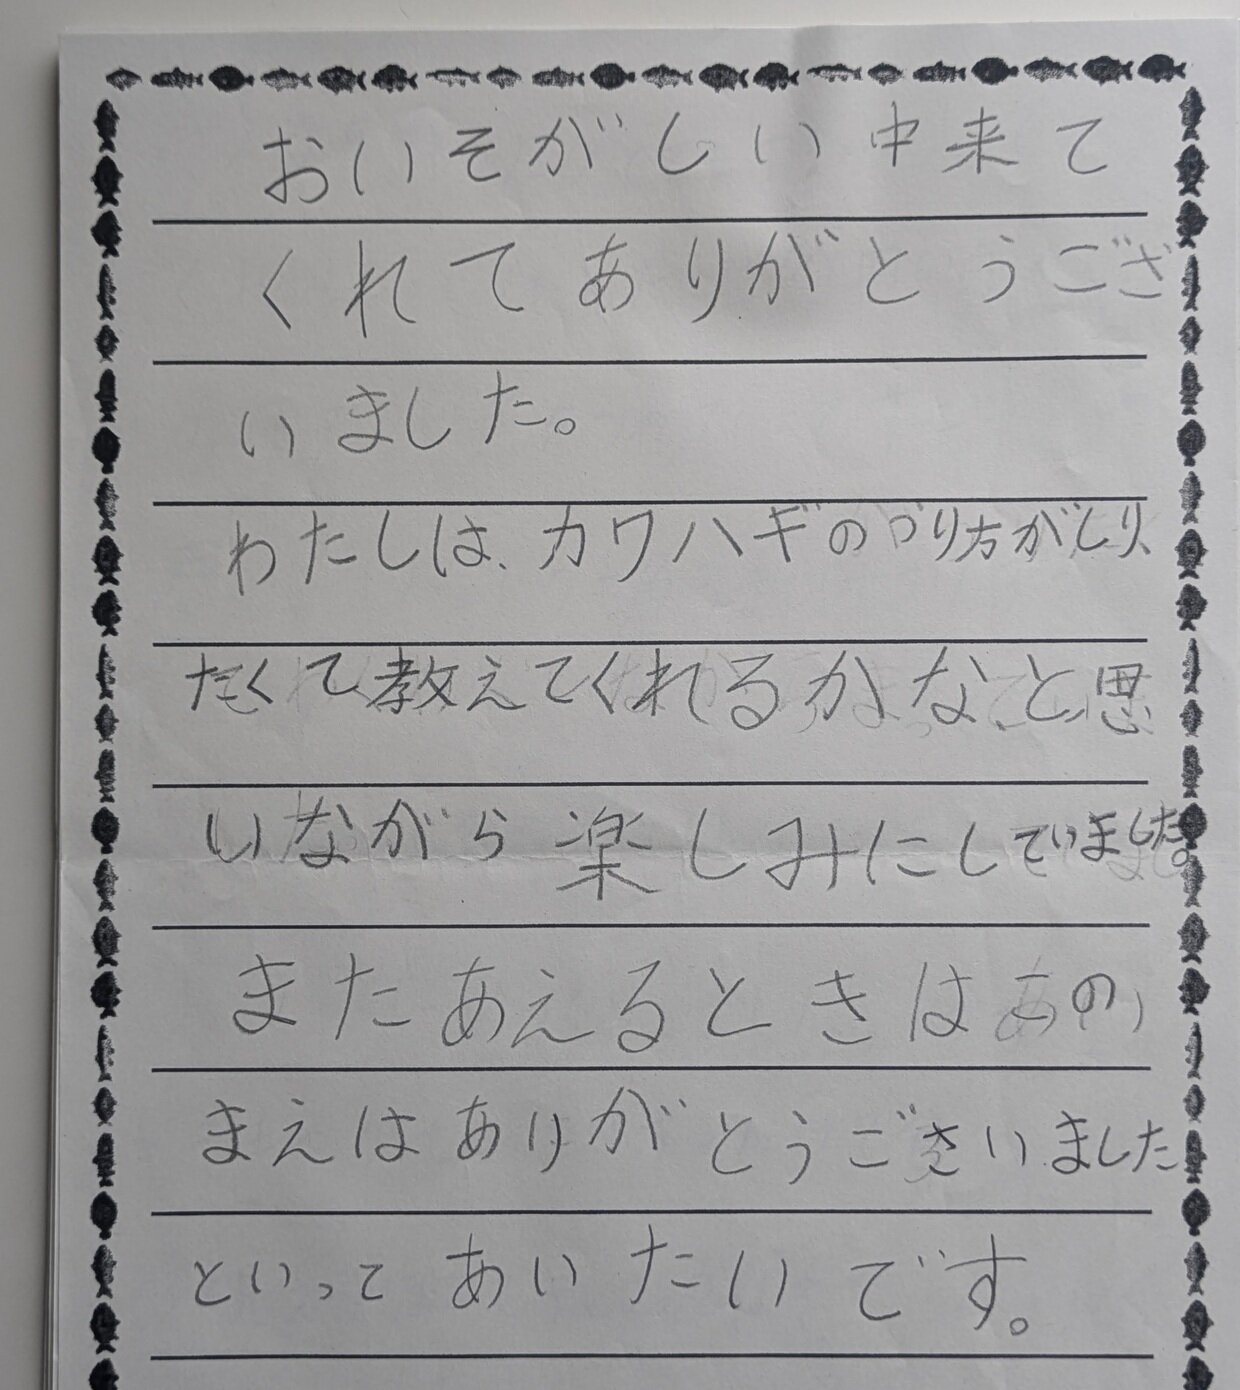 おいそがしい中来て
くれてありがとうござ
いました。
わたしは、カワハギのつり方がしり、
たくて教えてくれるかな、と思
いながら楽しみにしていました。
またあえるときはあの、
まえはありがとうございました
といってあいたいです。